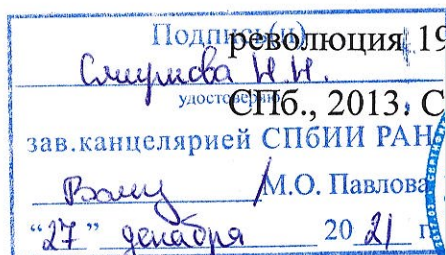 Подпись(и)
революция 19
Смирнова Н.Н.
удостоверяю
СПб., 2013. С
зав.канцелярией СПбИИ РАН
М.О. Павлова
“27” декабря 2021 г